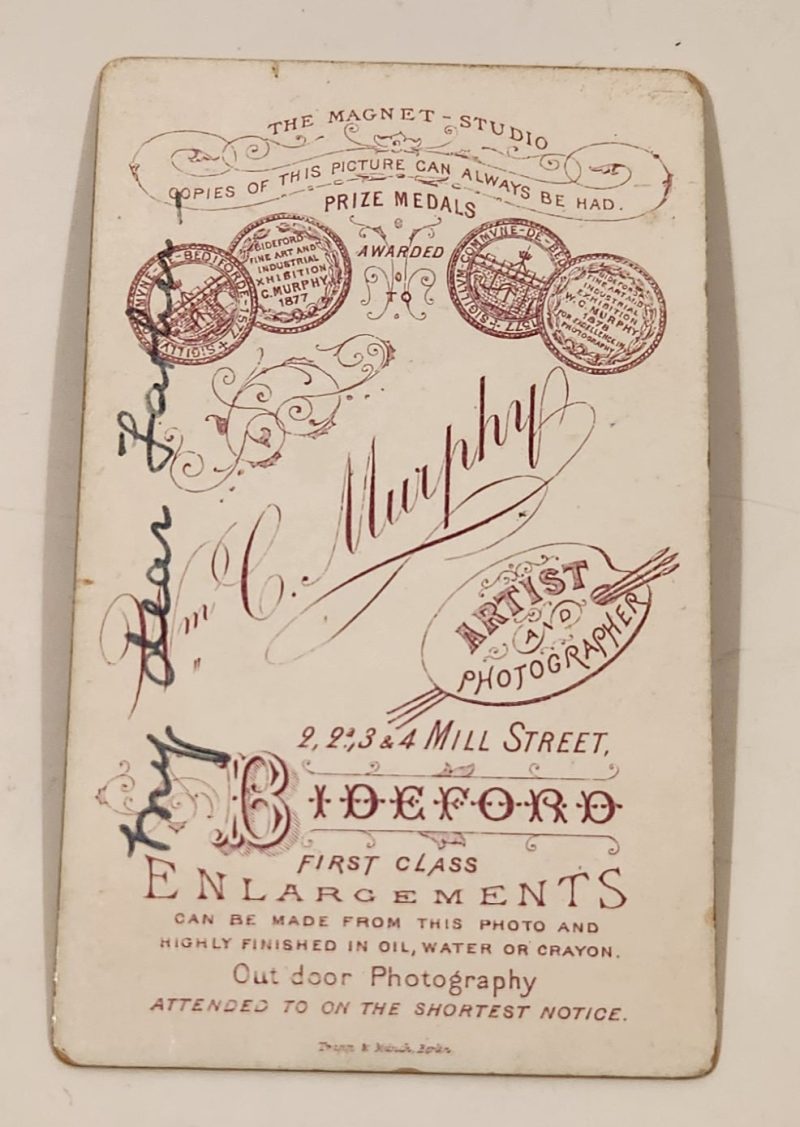 THE MAGNET-STUDIO
COPIES OF THIS PICTURE CAN ALWAYS BE HAD.
PRIZE MEDALS
AWARDED
TO
BIDEFORD
FINE ART AND
INDUSTRIAL
XHIBITION
C. MURPHY
1877
NE-DE-BEDIFORDE-1577 + SIGILLV
SIGILLVM-COMMVNE-DE-BED
1577
FINE ART AND
INDUSTRIAL
EXHIBITION
W. C. MURPHY
1878
FOR EXCELLENCE IN
PHOTOGRAPHY
Wm C. Murphy
ARTIST
AND
PHOTOGRAPHER
2, 2a, 3 & 4 MILL STREET,
BIDEFORD
FIRST CLASS
ENLARGEMENTS
CAN BE MADE FROM THIS PHOTO AND
HIGHLY FINISHED IN OIL, WATER OR CRAYON.
Out door Photography
ATTENDED TO ON THE SHORTEST NOTICE.
Berlin
My dear Father